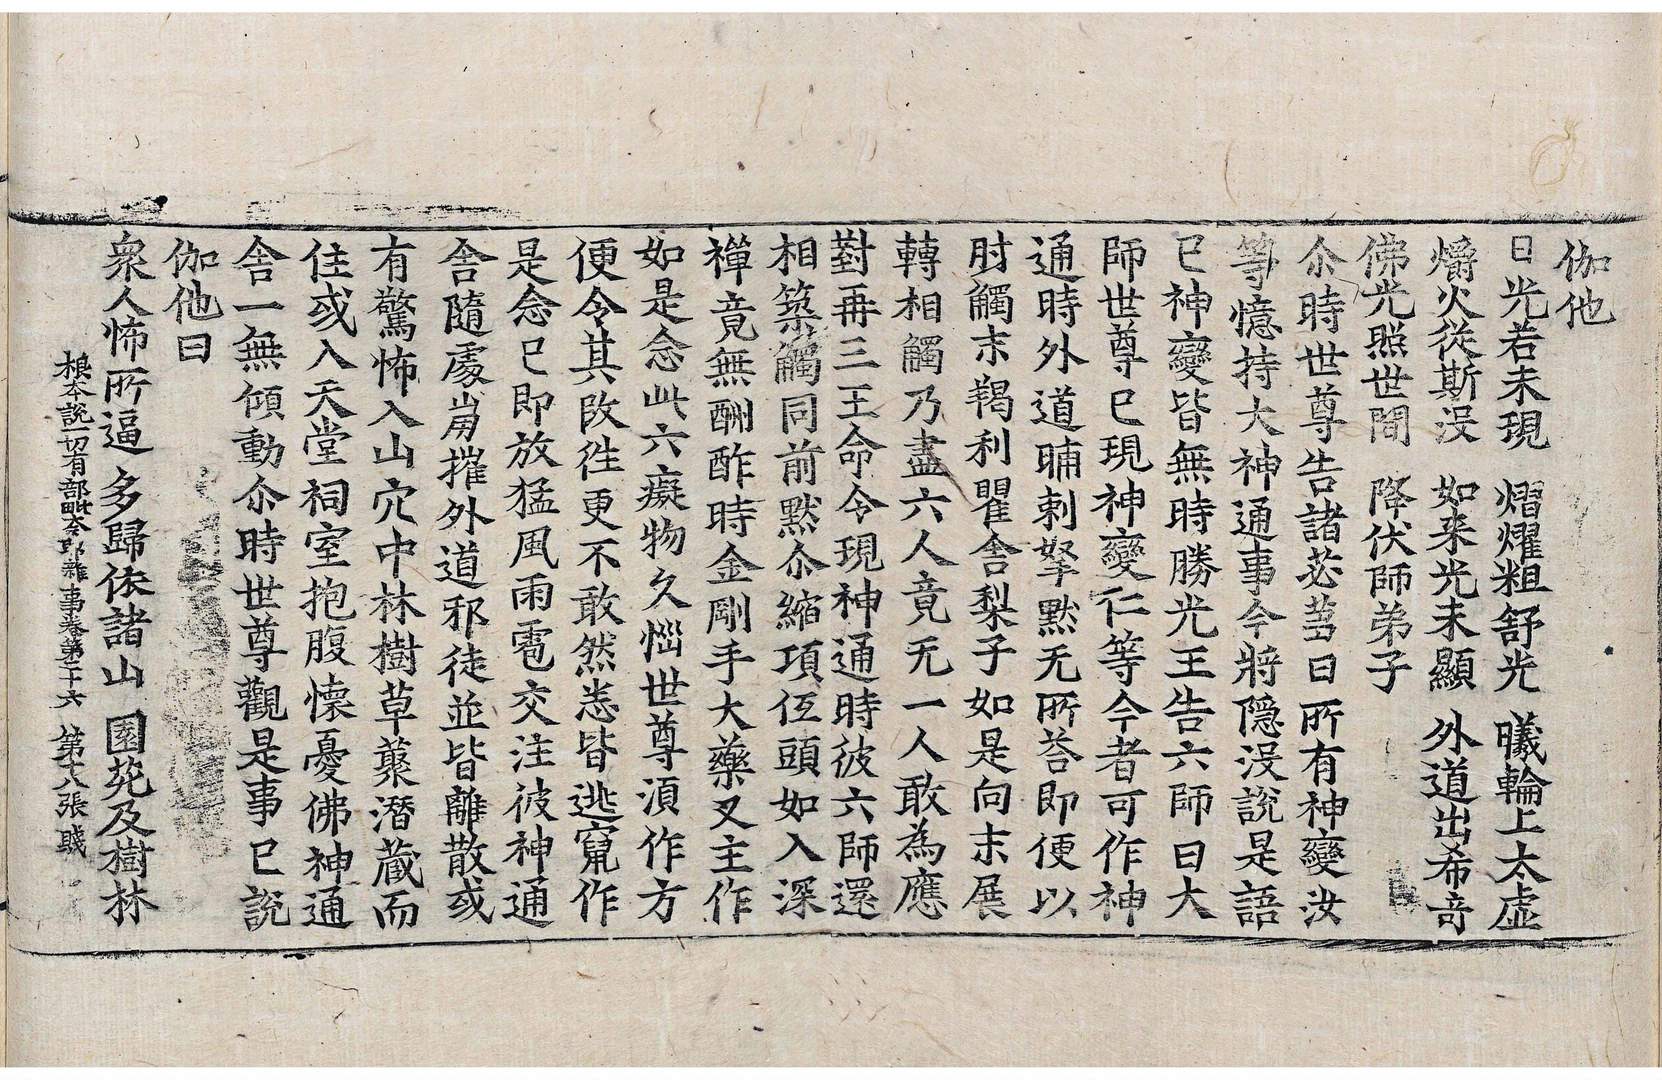 伽他
日光若未現　熠燿粗舒光　曦輪上太虛
爝火從斯沒　如来光未顯　外道出希奇
佛光照世間　降伏師弟子
尒時世尊告諸苾芻曰所有神變汝
等憶持大神通事今將隱沒說是語
已神變皆無時勝光王告六師曰大
師世尊已現神變仁等今者可作神
通時外道晡剌拏默无所荅即便以
肘觸末羯利瞿舍梨子如是向末展
轉相觸乃盡六人竟无一人敢為應
對再三王命令現神通時彼六師還
相築觸同前默尒縮項低頭如入深
禪竟無酬酢時金剛手大藥叉主作
如是念此六癡物久惱世尊湏作方
便令其改徃更不敢然恙皆逃竄作
是念已即放猛風雨雹交注彼神通
舍隨處崩摧外道邪徒並皆離散或
有驚怖入山穴中林樹草藂潛藏而
住或入天堂祠室抱腹懐憂佛神通
舍一無傾動尒時世尊觀是事已說
伽他曰
衆人怖所逼　多歸依諸山　園苑及樹林
根本說一切有部毗奈耶雜事卷第二十六　第十八張　賤